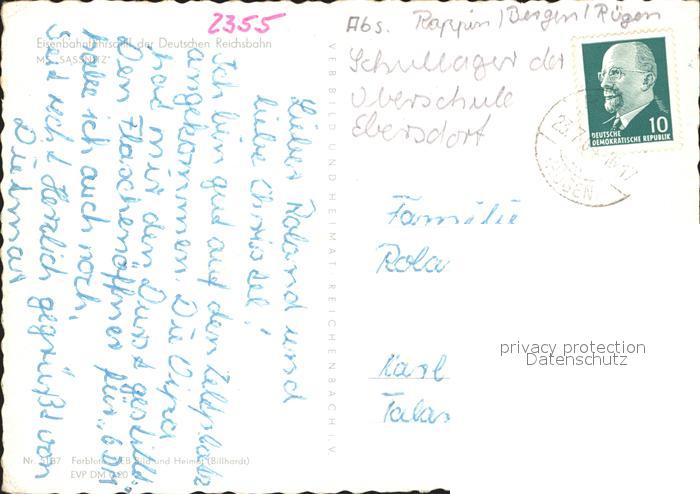 2355
Eisenbahnfährschiff der Deutschen Reichsbahn
MS "SASSNITZ"
Lieber Roland und
liebe Chrissel!
Ich bin gut auf den Zeltplatz
angekommen. Die Vipa
hat mir den Durst gestillt.
Den Flaschenöffner für
habe ich auch noch.
Seid recht Herzlich gegrüßt von
Dietmar
Nr. 5187 Farbfoto: VEB Bild und Heimat (Billhardt)
EVP DM 0,20
VEB BILD UND HEIMAT REICHENBACH I.V.
Abs. Rappin/Bergen/Rügen
Schullager der
Oberschule
Ebersdorf
10
DEUTSCHE
DEMOKRATISCHE REPUBLIK
Familie
privacy protection
Datenschutz